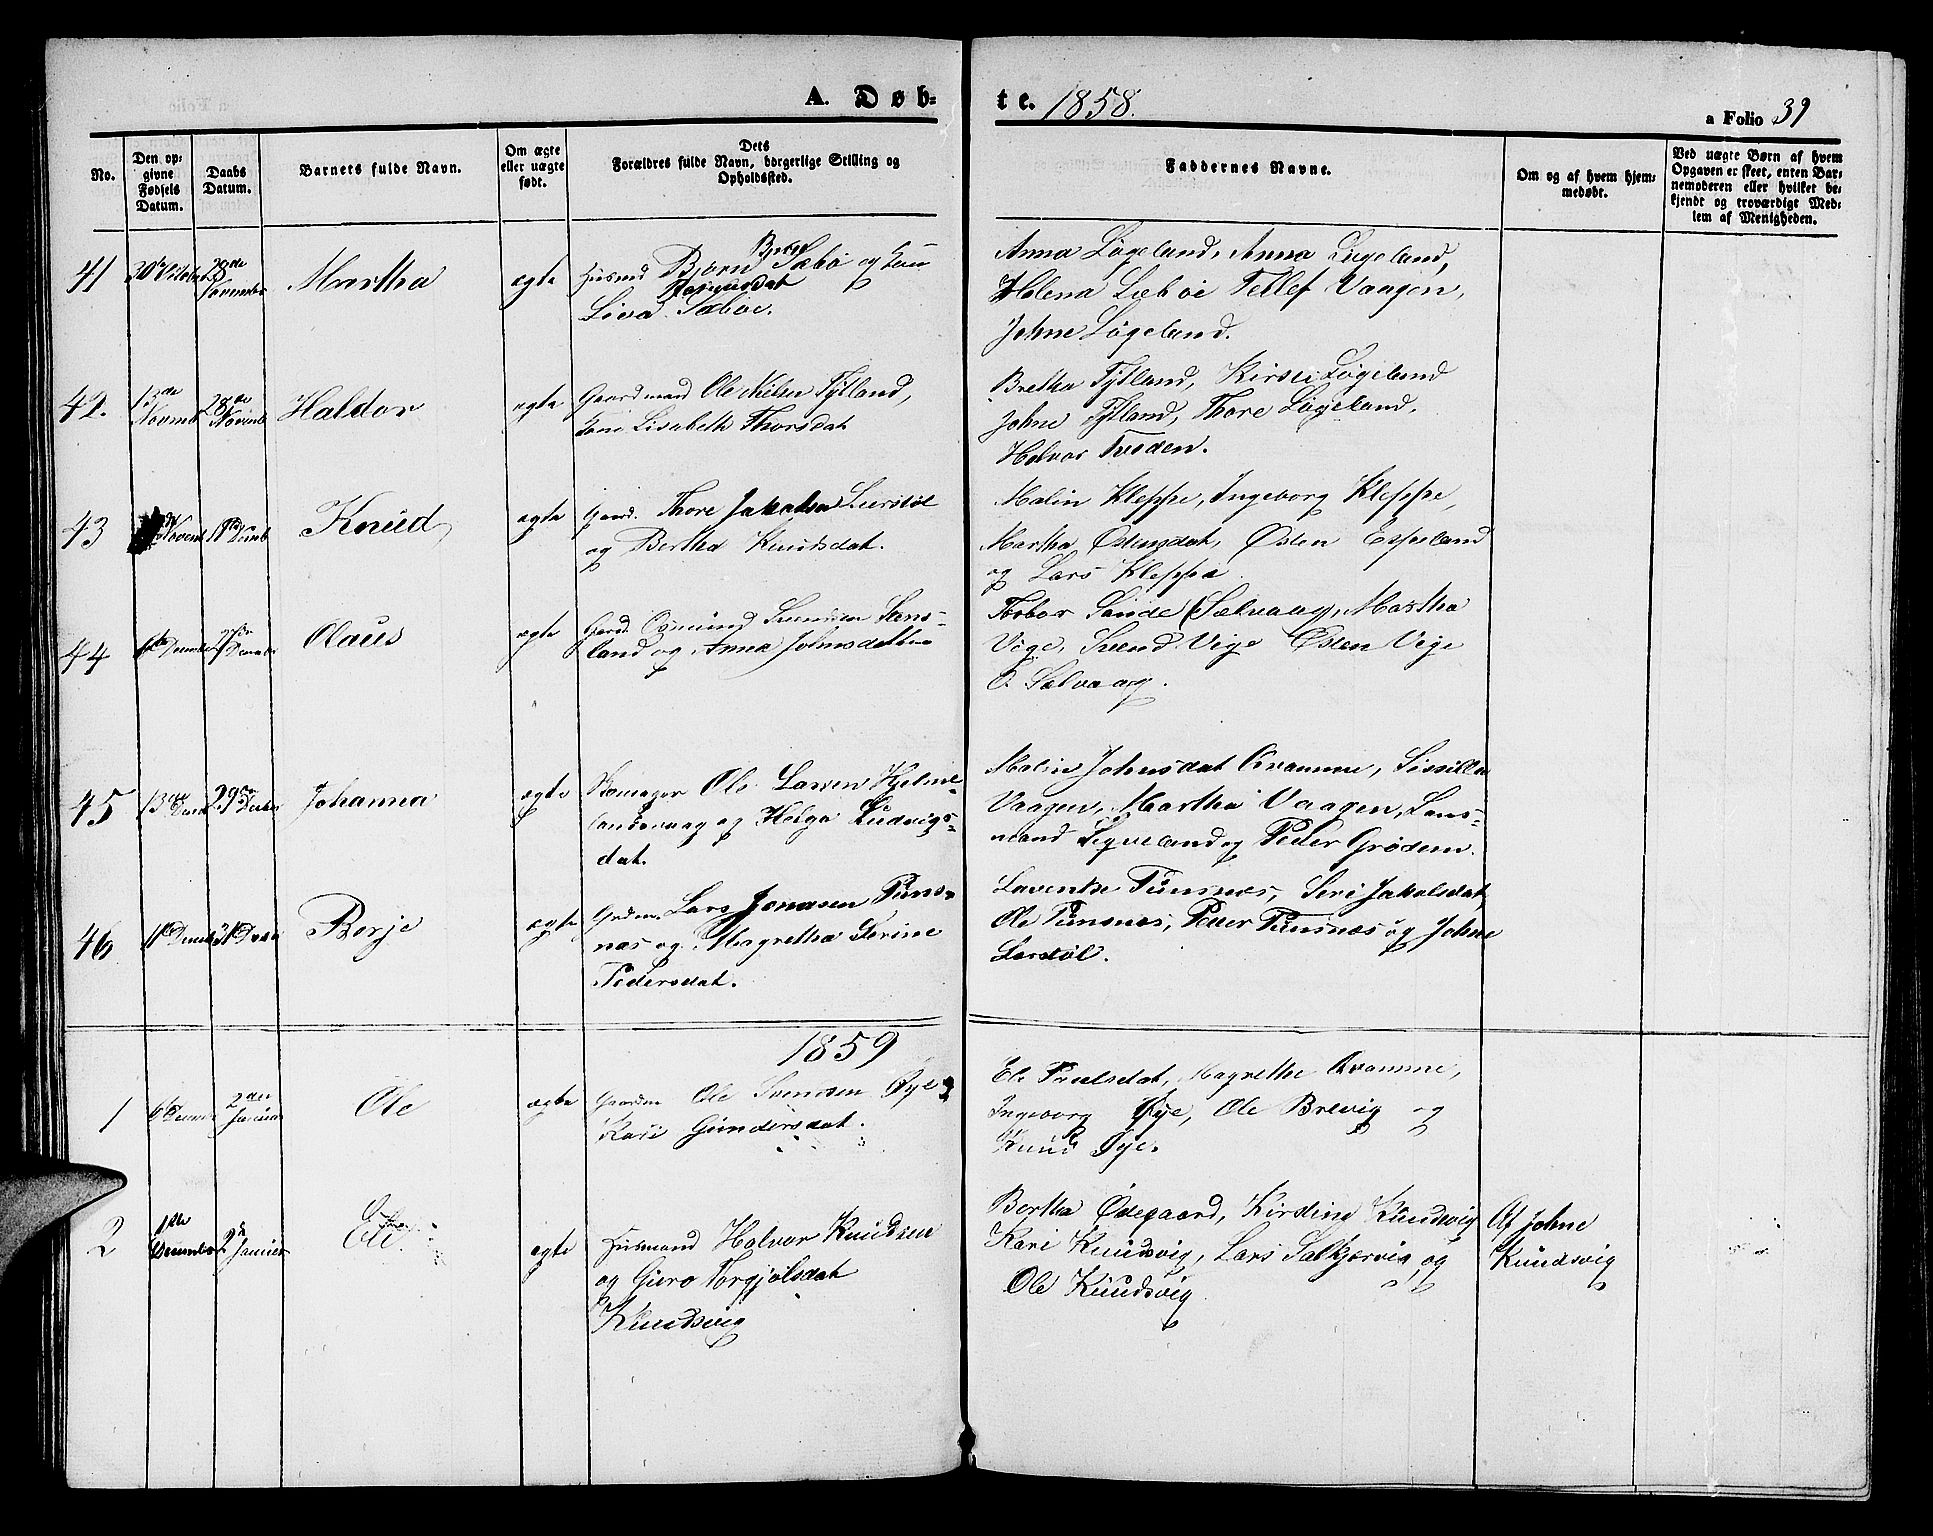 A. Døb=
te. 1858.
a Folio 39
No.
Den op=
givne
Fødsels
Datum.
Daabs
Datum.
Barnets fulde Navn.
Om ægte
eller uægte
født.
Dets
Forældres fulde Navn, borgerlige Stilling og
Opholdssted.
Faddernes Navne.
Om og af hvem hjem=
medøbt.
Ved uægte Børn af hvem
Opgaven er skeet, enten Bar=
nemoderen eller hvilket be=
kjendt og troværdigt Med=
lem af Menigheden.
41
28de
Martha
ægte
Husmd Bjørn Sæbø og
Sæbøe.
Anna Løgeland, Anna Løgeland,
Helena Sæbøe Tellef Vaagen,
Johne Løgeland.
42.
13de
Novmb
28de
Novmb
Haldor
ægte
Gaardmand Ole Nilsen Tytland,
Lisabeth Thorsdat
Bretha Tytland, Kirsti Løgeland
Johne Tytland, Thore Løgeland.
Halvor Tveden.
43
Novemb
Knud
ægte
Gaard. Thore Jakobsen
og Bertha Knudsdat.
Malin Kleppe, Ingeborg Kleppe,
Martha Østensdat, Østen Espeland
og Lars Kleppe
44
Olaus
ægte
Gaard. Osmund
land og Anna
Sande (Sælvaag), Martha
Vige, Svend Vige Østen Vige
O. Sælvaag.
45
13de
29de
Johanna
ægte
Skomager Ole Larsen Hjelme=
landsvaag og Helga Ludvigs=
dat.
Malin Johnsdat Kvamme, Sissilla
Vaagen, Martha Vaagen, Lans=
mand Sigveland og Peder Grødem.
46
Borje
ægte
Lars Jonasen Puns=
næs og Magretha Serine
Pedersdat.
Punsnæs, Seri Jakobsdat,
Ole Punsnæs, Peder Punsnæs og Johne
1859
1
6te
2den
Januar
Ole
ægte
Gaardm Ole Svendsen Øye
Kari Gundersdat.
Eli Poulsdat, Magrethe Kvamme,
Ingeborg Øye, Ole Brevig og
Knud Øye.
2
1ste
Decembr
2de
Januar
Eli
ægte
Husmand Halvor Knudsen
og Guro Torgjølsdat
Knudsvig
Bertha Ødegaard, Kirstine Knudsvig
Kari Knudsvig, Lars Salkjærvig og
Ole Knudsvig
Af Johne
Knudsvig